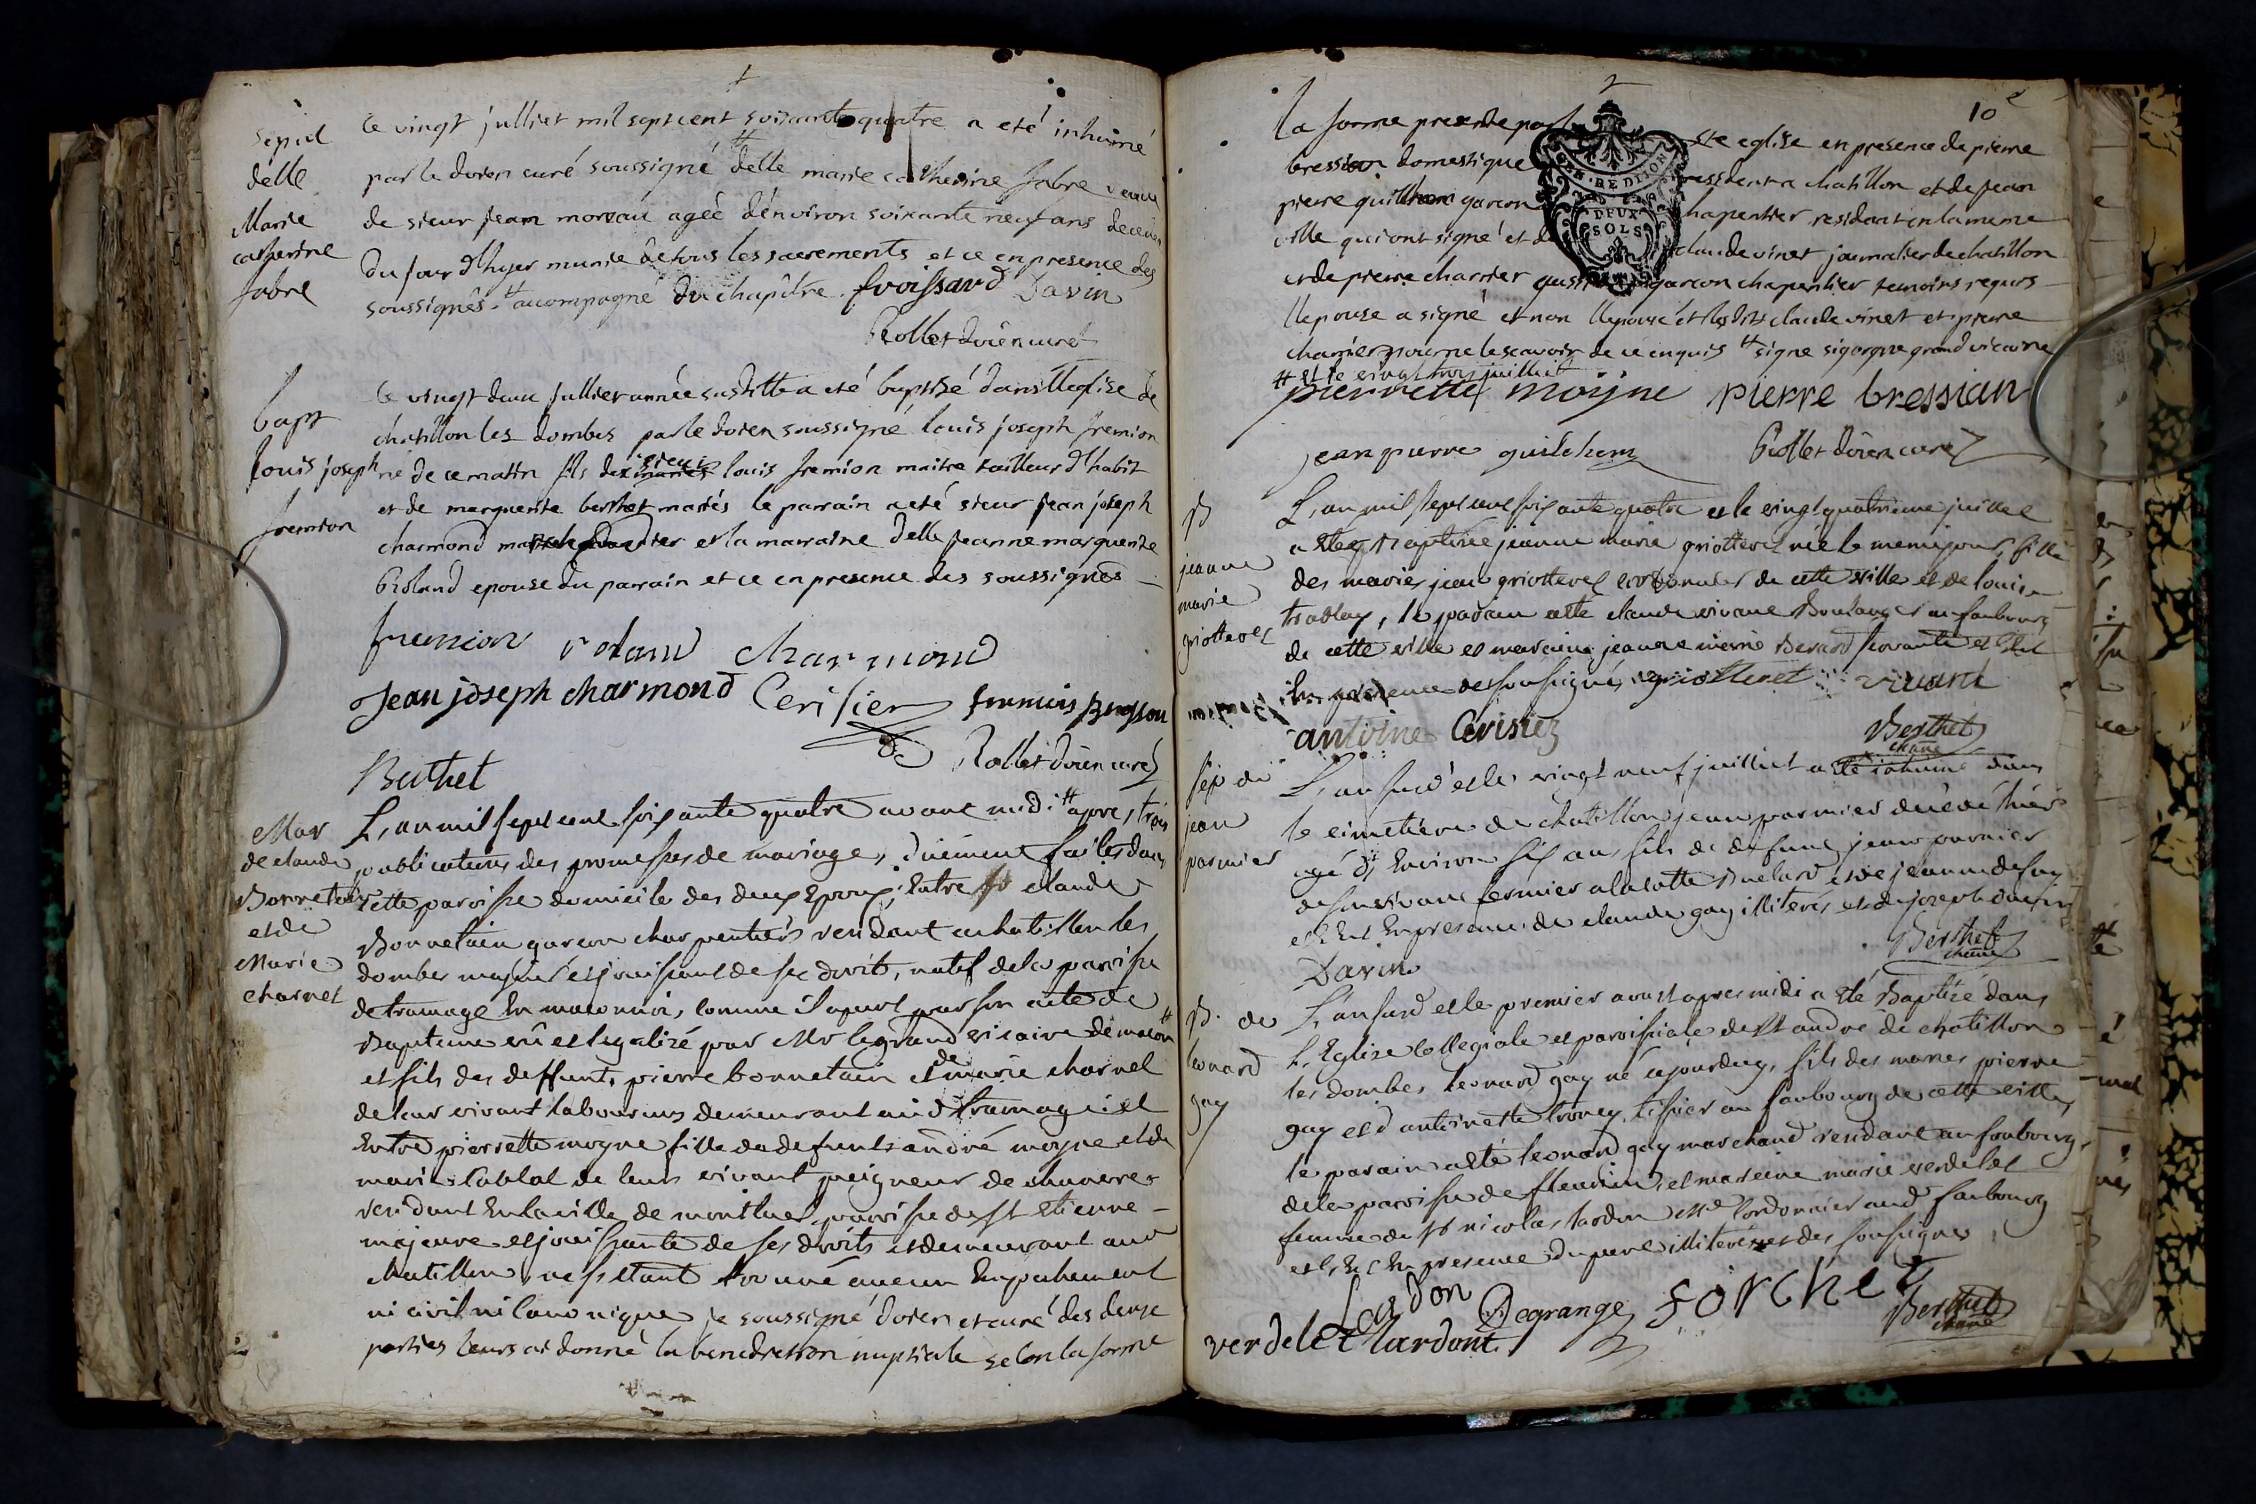 Sepul
delle
Marie
catherine
fabre
Ce vingt julliet mil sept cent soixante quatre a eté inhumé
par le doien curé soussigné delle marie catherine fabre veuve
de sieur jean moreau ageé d'environ soixante neuf ans
du jour d'hyer munie de tous les sacrements et ce en presence des
soussignês # acompagné du chapître. froissard Davin
Rollet doien curé
bapt
Louis joseph
fremion
le vingt deux julliet année susditte a eté baptisé dans l'eglise de
chatillon les dombes par le doien soussigné louis joseph fremion
né de ce matin fils de sieur louis fremion maitre tailleur d'habit
et de marguerite berthet mariés le parrain a eté sieur jean joseph
charmond et la marraine delle jeanne marguerite
Roland epouse du parrain et ce en presence des soussignés
fremion rolant charmond
Jean joseph charmond Cerisier
Rollet doien curé
Berthet
Mar
de claude
Bonnetain
et de
Marie
charnet
L'an mil sept cent soixante quatre avant midi # apres trois
publications des promesses de mariage, duement faites dans
cette paroisse domicile des deux Epoux; Entre claude
Bonnetain garcon charpentier residant a chatillon les
dombes majeur et jouissant de ses droits, natif de la paroisse
de tramage En maconnois, comme il apert par son acte de
Baptême vû et legalizé par Mr le grand vicaire de macon #
et fils des deffunts pierre bonnetain et de marie charnet
de leur vivant laboureurs demeurant aud tramage; et
Entre pierrette moyne fille de defunts andré moyne et de
marie de leur vivant peigneur de chanvre
residant En la ville de montluel paroisse de St Etienne
majeure et jouissante de ses droits et demeurant aud
chatillon, ne s'etant trouvé aucun Empechement
ni civil ni canonique je soussigné doien et curé des deux
parties leurs ai donné la benediction nuptiale selon la forme
10
la forme presente par ste eglise en presence de pierre
bressian domestique resident a chatillon et de jean
pierre guilhem garcon chapentier residant en la meme
ville qui ont signé et de claude vinet journalier de chatillon
et de pierre charrier aussi garcon chapentier temoins requis
l'epouse a signé et non l'epoux et lesdits claude vinet et pierre
charrier pour ne le scavoir de ce enquis # signe sigorgne grand vicaire
# et le vingt trois juillet
GEN. REDITION
DEUX
SOLS
pierrette moyne pierre bressian
jean pierre guilhem Rollet doien curé
B
jeanne
marie
griotteret
L'an mil sept cent soixante quatre et le vingt quatrieme juillet
a eté Baptisée jeanne marie griotteret née le meme jour, fille
des mariés jean griotteret cordonnier de cette ville et de louise
trablay, le parain a été claude vivant Boulanger au faubourg
de cette ville et maraine jeanne marie Berard servante et
En presence des soussignés griotteret vivant
antoine Cerisier
Berthet
chane
Sep de
jean
parmier
L'an susd et le vingt neuf juillet a eté inhumé dans
le cimetiere de chatillon jean parmier décédé hier
agé d'Environ six ans fils de defunt jean parmier
de son vivant fermier a la et de jeanne
En presence de claude gay illiteré, et de joseph davin
Davin
Berthet
chane
B. de
leonard
gay
L'an susd et le premier aoust apres midi a eté Baptizé dans
L'Eglise collegiale et paroissiale de St andré de chatillon
les dombes leonard gay né cejourdhuy, fils des mariés pierre
gay et d'antoinette, tissier au faubourg de cette ville,
le parain a eté leonard gay marchand residant au faubourg,
de la paroisse de fleurieu, et maraine marie verdelet
femme de nicolas lardon cordonnier aud faubourg
En presence du pere illiteré et des soussignés
Lardon Degrange forchet
verdelet lardont
Berthet
chane